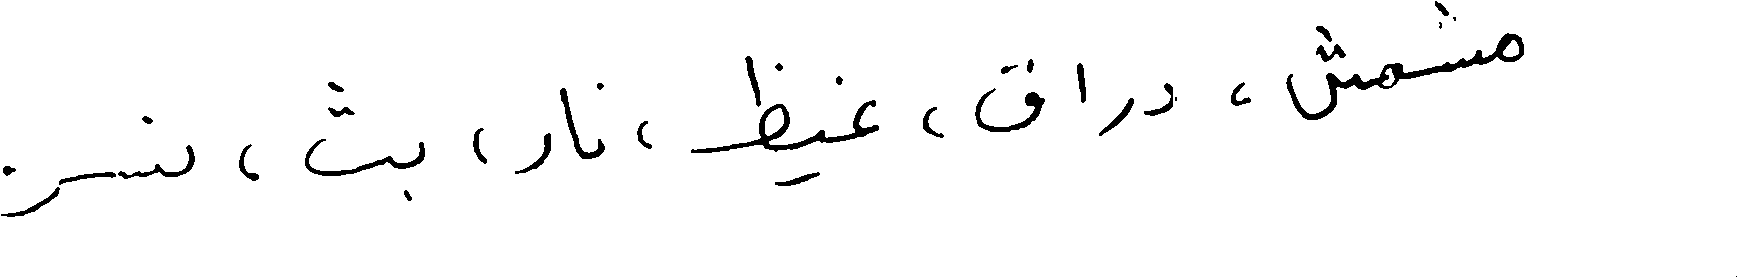 مشمش، دراق، غيظ، نار، بث، نسر